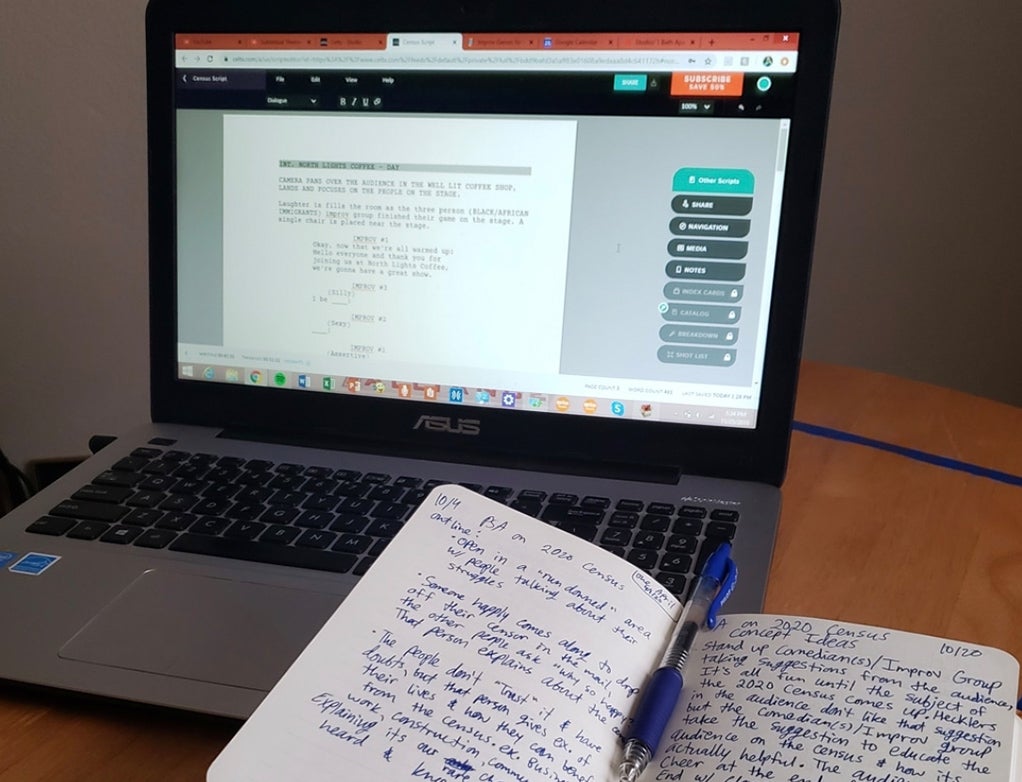 YouTube
Census Script
Google Calendar
Census Script
File Edit View Help
SHARE
SUBSCRIBE
SAVE 50%
Dialogue
B I U
100%
INT. NORTH LIGHTS COFFEE - DAY
CAMERA PANS OVER THE AUDIENCE IN THE WELL LIT COFFEE SHOP,
LANDS AND FOCUSES ON THE PEOPLE ON THE STAGE.
Laughter is fills the room as the three person (BLACK/AFRICAN
IMMIGRANTS) improv group finished their game on the stage. A
single chair is placed near the stage.
IMPROV #1
Okay, now that we're all warmed up;
Hello everyone and thank you for
joining us at North Lights Coffee,
we're gonna have a great show.
IMPROV #3
(Silly)
I be ____!
IMPROV #2
(Sexy)
____!
IMPROV #1
(Assertive)
Other Scripts
SHARE
NAVIGATION
MEDIA
NOTES
INDEX CARDS
CATALOG
BREAKDOWN
SHOT LIST
PAGE COUNT WORD COUNT LAST SAVED TODAY
ASUS
10/4 PSA on 2020 Census
outline:
• Open in a "run downed" area
w/ people talking about their
struggles
• Someone happily comes along to drop
off their censor in the mail,
the other people ask "why so happy"
That person explains about the
• The people don't "trust" it & have
doubts, but that person gives ex. of
their lives & how they can benefit
from the census. ex. Business
work, construction,
Explaining its our
heard &
on 2020 Census 10/20
Concept Ideas
stand up Comedian(s)/Improv Group
taking suggestions from the audience,
It's all fun until the subject of
the 2020 Census comes up. Hecklers
in the audience don't like that suggestion
but the Comedian(s)/Improv group
take the suggestion to educate the
audience on the census & how it
actually helpful. The
Cheer at the
End w/